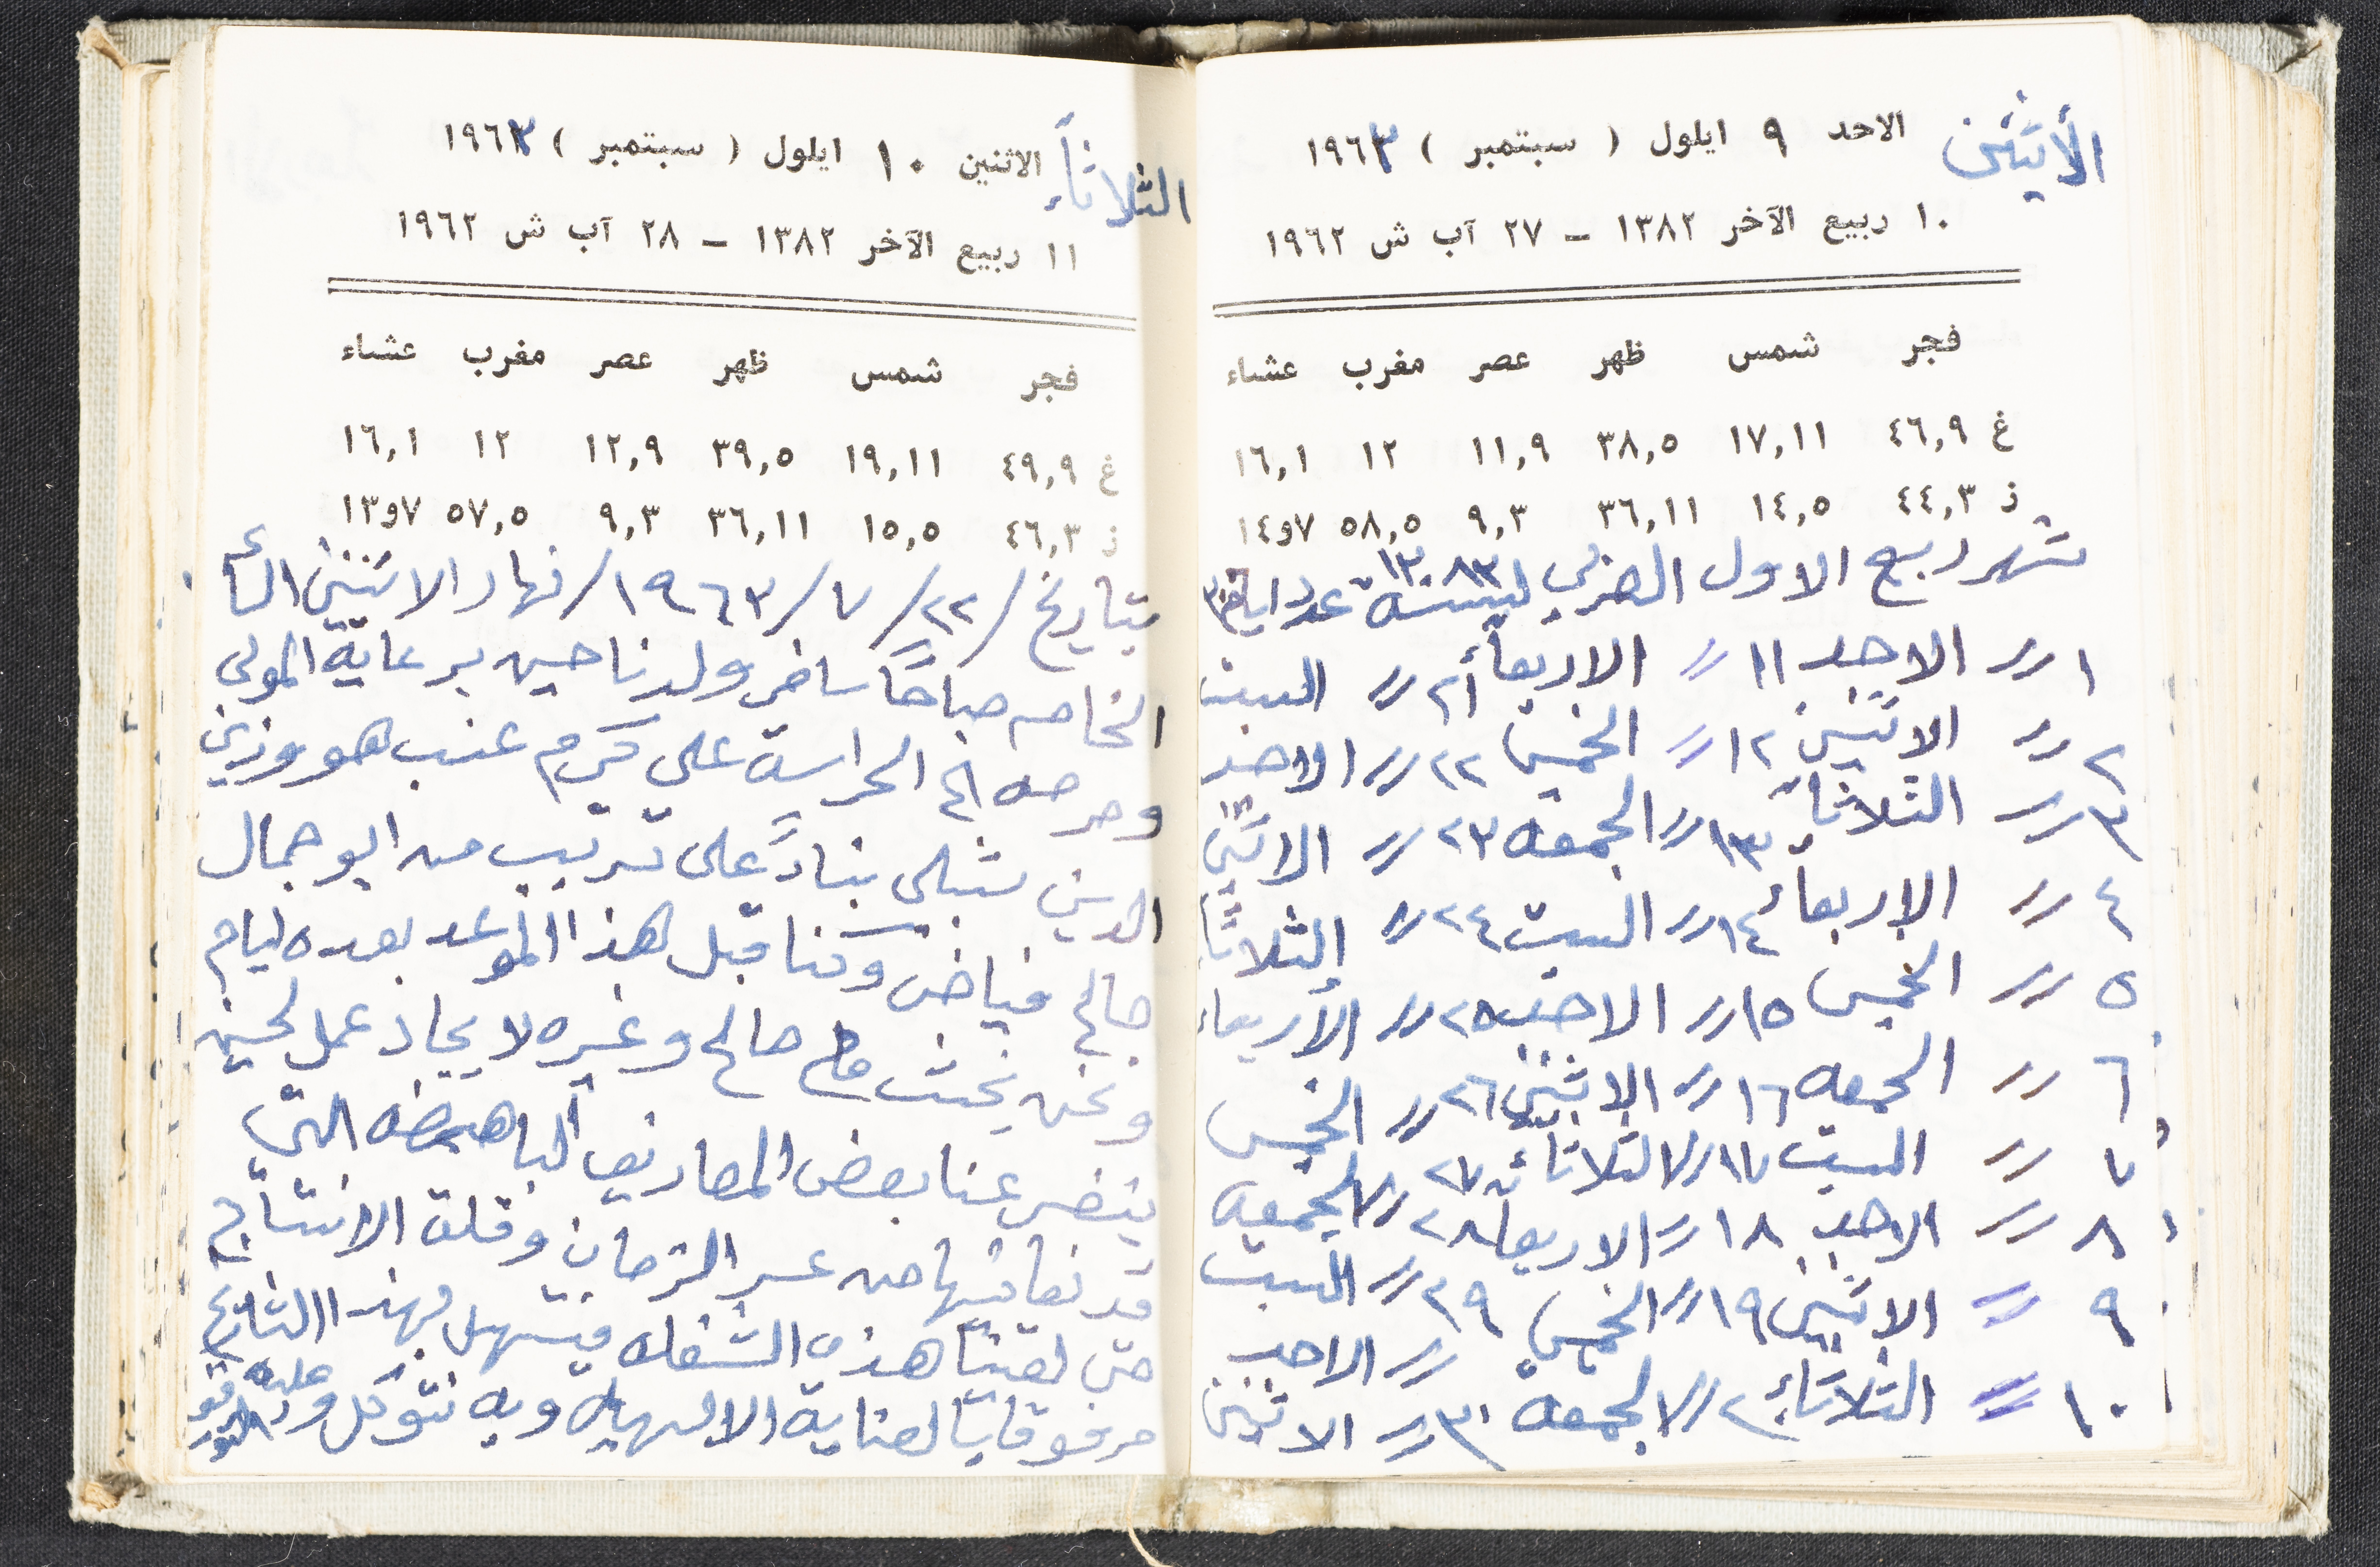 الأثنين الاحد ٩ ايلول ( سبتمبر ) ١٩٦٣
١٠ ربيع الآخر ١٣٨٢ – ٢٧ آب ش ١٩٦٢
فجر شمس ظهر عصر مغرب عشاء
غ ٤٦,٩ ١٧,١١ ٣٨,٥ ١١,٩ ١٢ ١٦,١
ز ٤٤,٣ ١٤,٥ ٣٦,١١ ٩,٣ ٥٨,٥ ٧و١٤
شهر ربيع الاول العربي لسنة ١٣٨٣ عدد ايامه ٣٠
١ // الاحد ١١ // الاربعأ ٢١ // السبت
٢ // الاثنين ١٢ // الخميس ٢٢ // الاحد
٣ // الثلاثاء ١٣ // الجمعه ٢٣ // الاثنين
٤ // الاربعأ ١٤ // السبت ٢٤ // الثلاثاء
٥ // الخميس ١٥ // الاحد ٢٥ // الأربعاء
٦ // الجمعه ١٦ // الاثنين ٢٦ // الخميس
٧ // السبت ١٧ // الثلاثاء ٢٧ // الجمعه
٨ // الاحد ١٨ // الاربعأ ٢٨ // الجمعه
٩ // الاثنين ١٩ // الخميس ٢٩ // السبت
١٠ // الثلاثاء ٢٠ // الجمعة // الاحد
٣٠ // الاثنين
الثلاثاء الاثنين ١٠ ايلول ( سبتمبر ) ١٩٦٣
١١ ربيع الآخر ١٣٨٢ – ٢٨ آب ش ١٩٦٢
فجر شمس ظهر عصر مغرب عشاء
غ ٤٩,٩ ١٩,١١ ٣٩,٥ ١٢,٩ ١٢ ١٦,١
ز ٤٦,٣ ١٥,٥ ٣٦,١١ ٩,٣ ٥٧,٥ ٧و١٣
بتاريخ /٢٢/٧/١٩٦٣/ نهار الاثنين السأ
الخامسه صباحًا سافر ولدنا حسين برعاية المولى
وحرصه الى الحراسة على كرم عنب هو وزين
الدين شبلي بناءً على ترتيب من ابو جمال
صالح فياض وكنا قبل هذا الموعد بعده ايام
ونحن نحث صالح وغيره لايجاد عمل لحسين
يتخضر عنا بعض المصاريف الباهضه التي
قد نعانيها من عسر الزمان وقلة الانتاج
حتى لقينا هذه الشغله فيتسهل بهذا التاريخ
مرفوقا بالعناية الالهيه وبه نتوكل وعليه